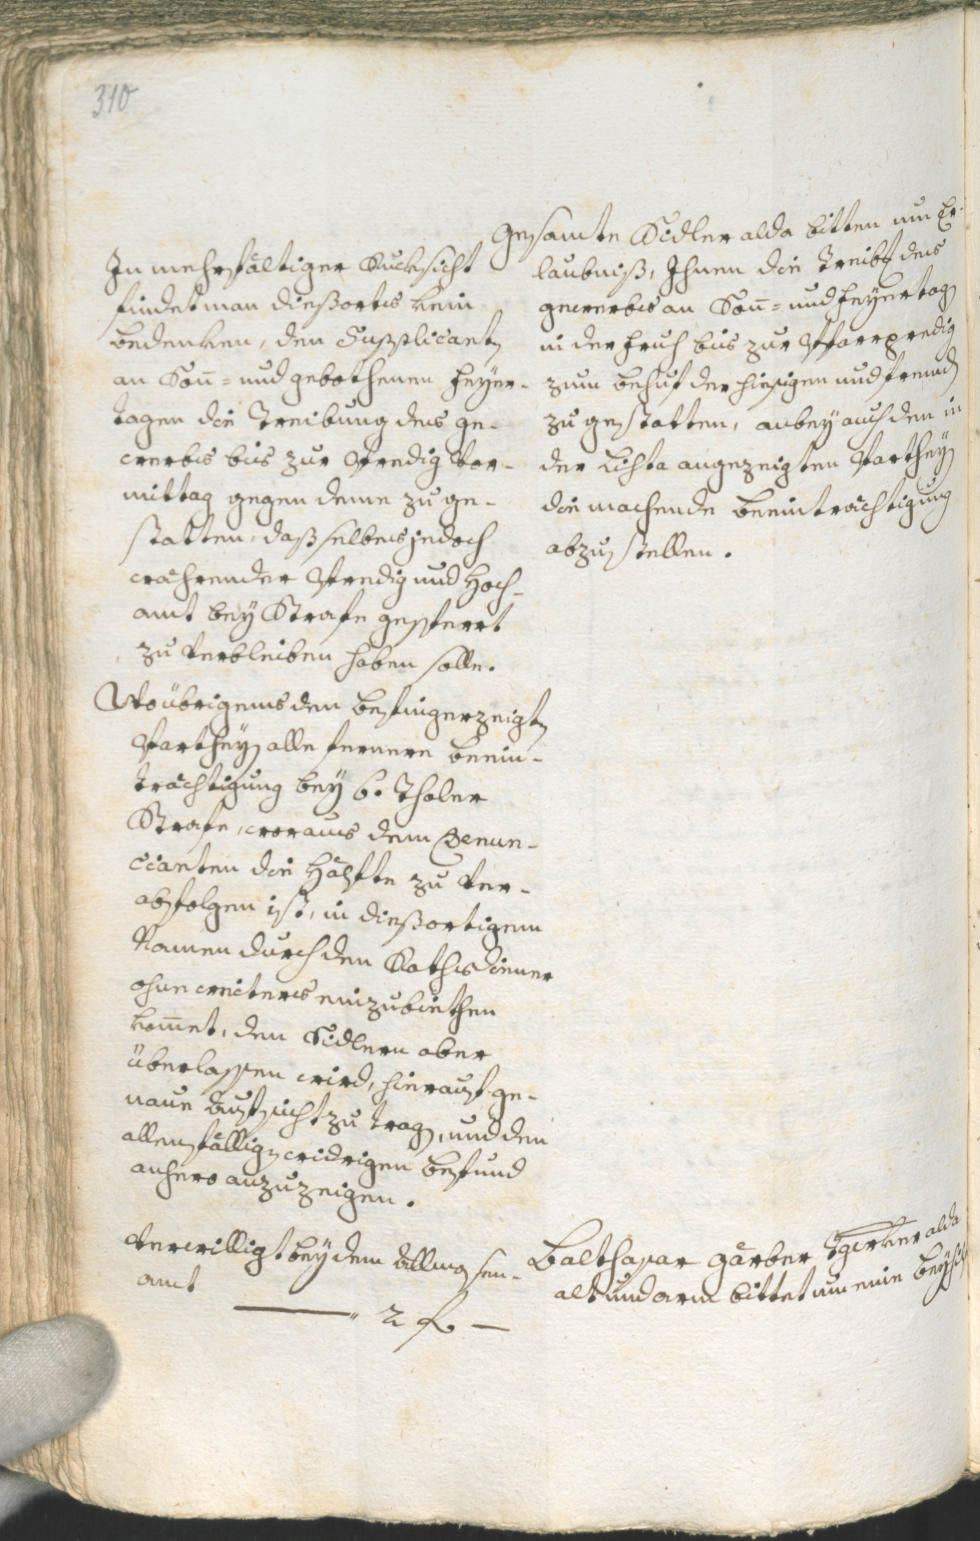 310
In mehrfältiger Rucksicht
findet man dießorts kein
bedenken, den Supplicantẽ
an Son̄= und gebothenen Feyer-
tagen die Treibung des ge-
werbs bis zur Predig Vor-
mittag gegen deme zu ge-
statten, daß selbes jedoch
währender Predig und Hoch-
amt beÿ Strafe gesperrt
zu verbleiben haben solle.
Wo übrigens den befingerzeigtẽ
Partheyẽ alle fernere beein-
trächtigung beÿ 6. Thaler
Strafe, woraus dem Denun-
cianten die Hälfte zu ver-
abfolgen ist, in dießortigem
Namen durch den Rathsdiener
ohne weiters einzubiethen
kom̄et, den Sidlern aber
überlassen wird, hierauf ge-
naue Aufsicht zu tragẽ, und den
allenfälligẽ widrigen befund
anhero anzuzeigen.
Verwilligt beÿ dem Allmosen-
amt
2 f —
Gesamte Sidler alda bitten um Er-
laubniß, Ihnen die Treibg des
gewerbes an Son̄= und feÿertagẽ
in der fruh bis zur Pfarrpredig
zum behuf der hiesigen und fremdẽ
zu gestatten, anbeÿ auch den in
der Lista angezeigten Partheyẽ
die machende beeinträchtigung
abzustellen.
Balthasar gärber alda
alt und arm bittet um eine